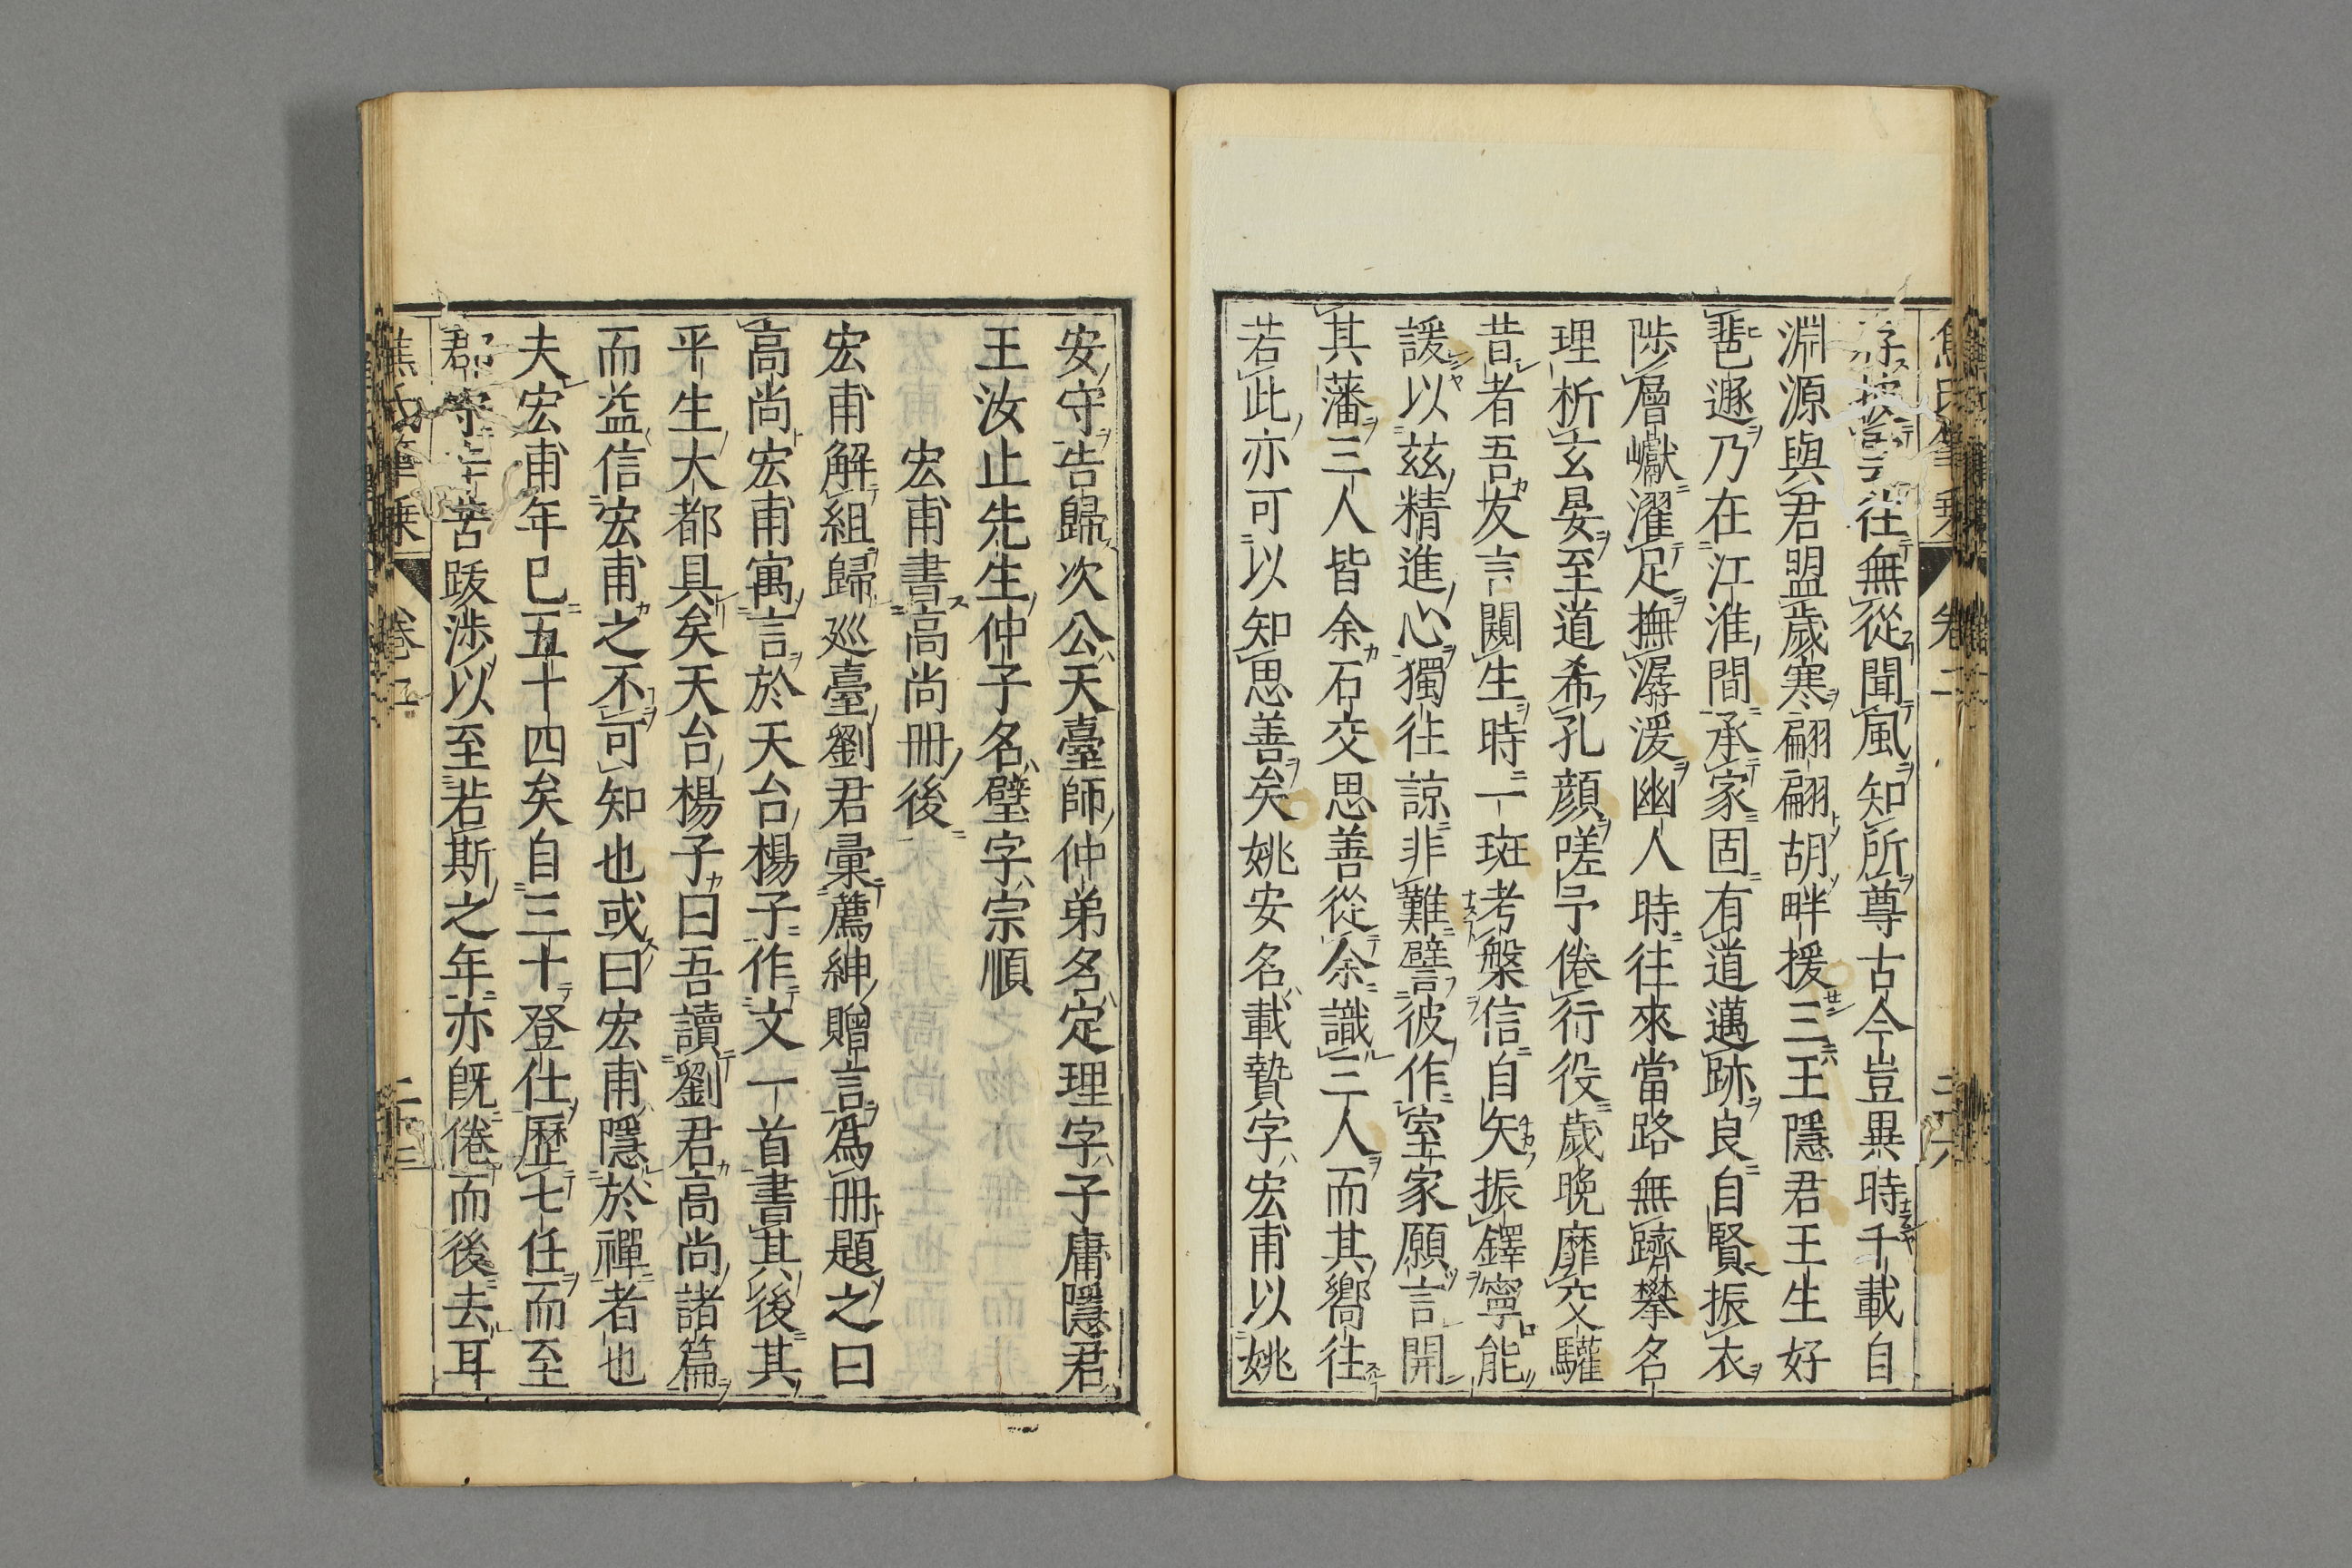 往無從聞風知所尊古今豈異時千載自
淵源與君盟歲寒翩翩胡畔援三王隱君王生好
遯乃在江淮間承家固有道邁跡良自賢振衣
陟層巘濯足撫潺湲幽人時往來當路無躋攀名
理析玄晏至道希孔顔嗟予倦行役歲晚靡交驩
昔者吾友言闚生時一斑考槃信自矢振鐸寧能
諼以茲精進心獨往諒非難譬彼作室家願言開
其藩三人皆余石交思善從余識三人而其嚮往
若此亦可以知思善矣姚安名載贄字宏甫以姚
安守告歸次公天臺師仲弟名定理字子庸隱君
王汝止先生仲子名璧字宗順
宏甫書高尚册後
宏甫解組歸巡臺劉君彙薦紳贈言爲册題之曰
高尚宏甫寓言於天台楊子作文一首書其後其
平生大都具矣天台楊子曰吾讀劉君高尚諸篇
而益信宏甫之不可知也或曰宏甫隱於禪者也
夫宏甫年巳五十四矣自三十登仕歷七任而至
郡守辛苦跋涉以至若斯之年亦旣倦而後去耳
焦氏筆乘
卷二